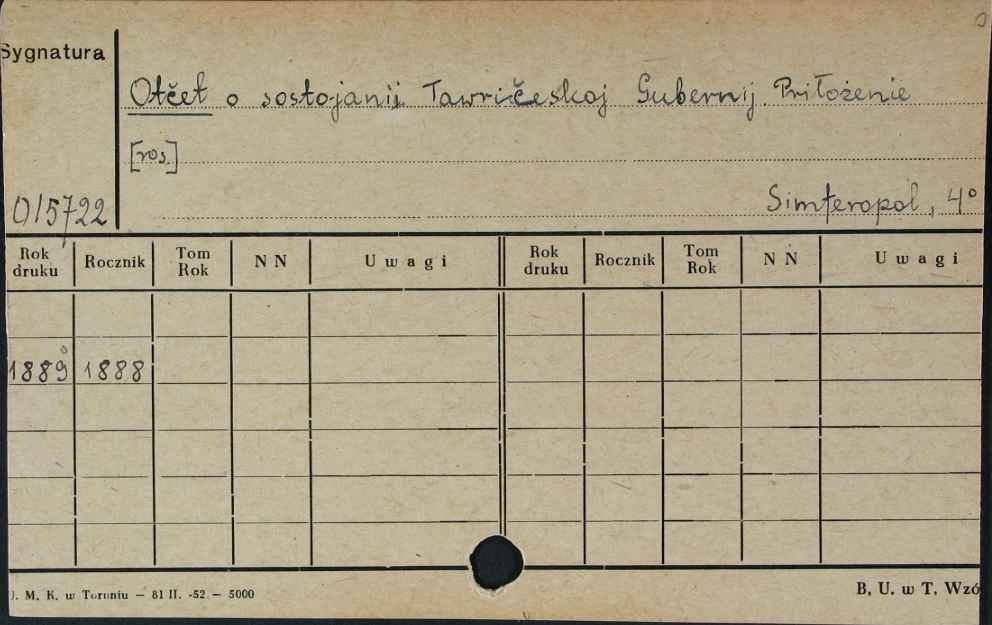 Sygnatura
Otčet o sostojanij Tawričeskoj Gubernij. Priłożenie
[ros.]
015722
Simferopol, 4°
Rok druku Rocznik Tom Rok NN Uwagi Rok druku Rocznik Tom Rok NN Uwagi
1889 1888
U. M. K. w Toruniu — 81 II. -52 — 5000
B. U. w T. Wzó